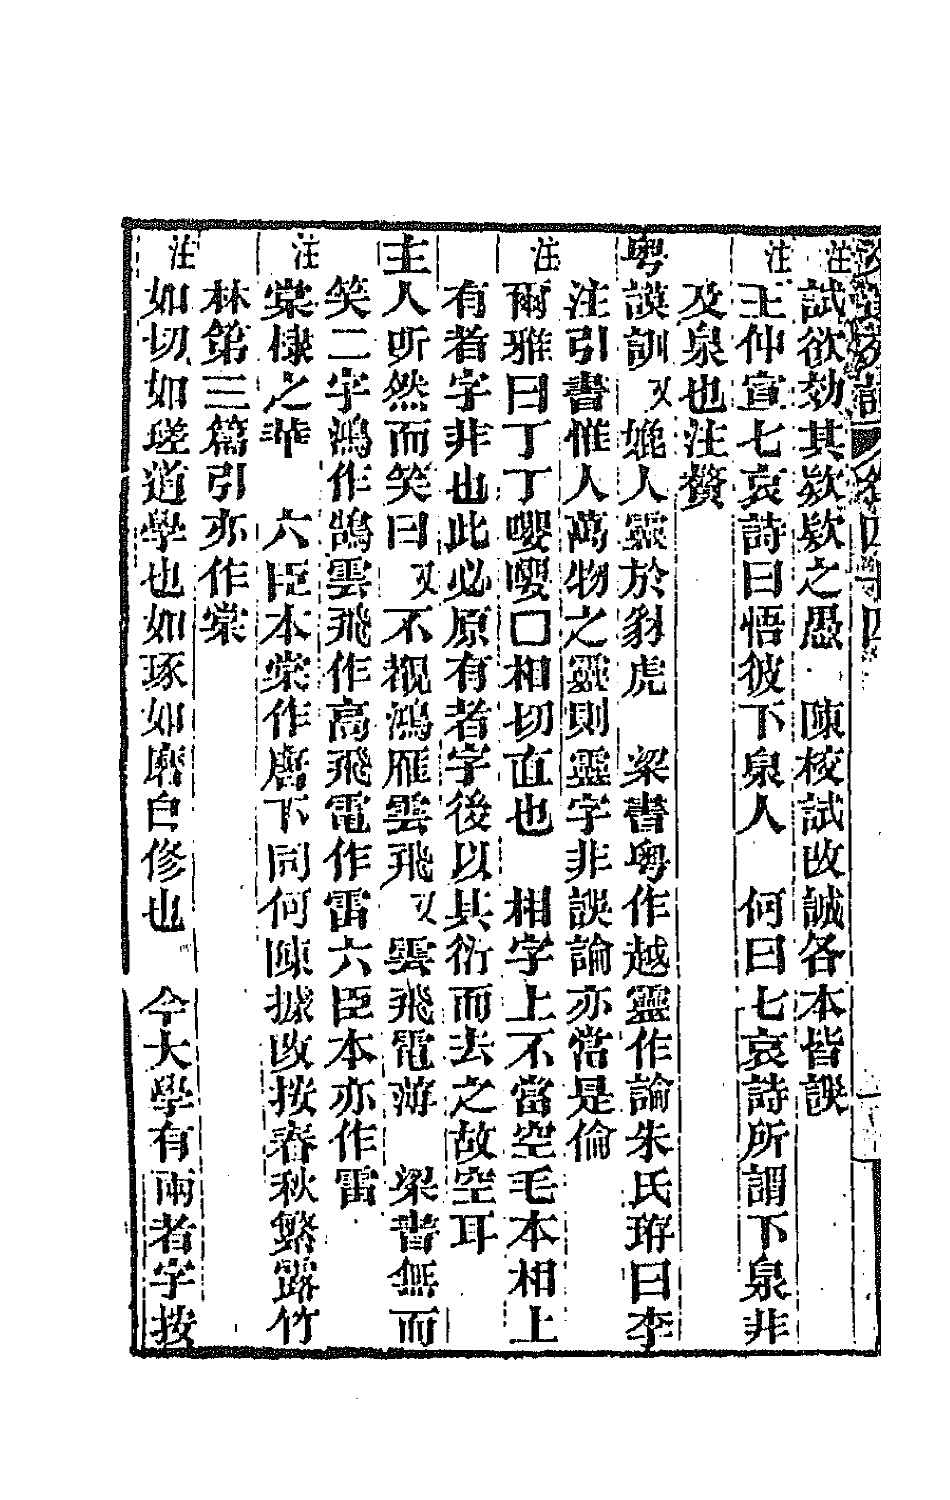 注試欲効其款款之愚　陳校試改誠各本皆誤
注王仲宣七哀詩曰悟彼下泉人　何曰七哀詩所謂下泉非
及泉也注贅
粵謨訓　又　媲人靈於豺虎　梁書粵作越靈作論朱氏珔曰李
注引書惟人萬物之靈則靈字非誤論亦當是倫
注爾雅曰丁丁嚶嚶□相切直也　相字上不當空毛本相上
有者字非也此必原有者字後以其衍而去之故空耳
主人听然而笑曰　又　不覩鴻雁雲飛　又　雲飛電薄　梁書無而
笑二字鴻作鵠雲飛作高飛電作雷六臣本亦作雷
注棠棣之華　六臣本棠作唐下同何陳據改按春秋繁露竹
林第三篇引亦作棠
注如切如瑳道學也如琢如磨自修也　今大學有兩者字按